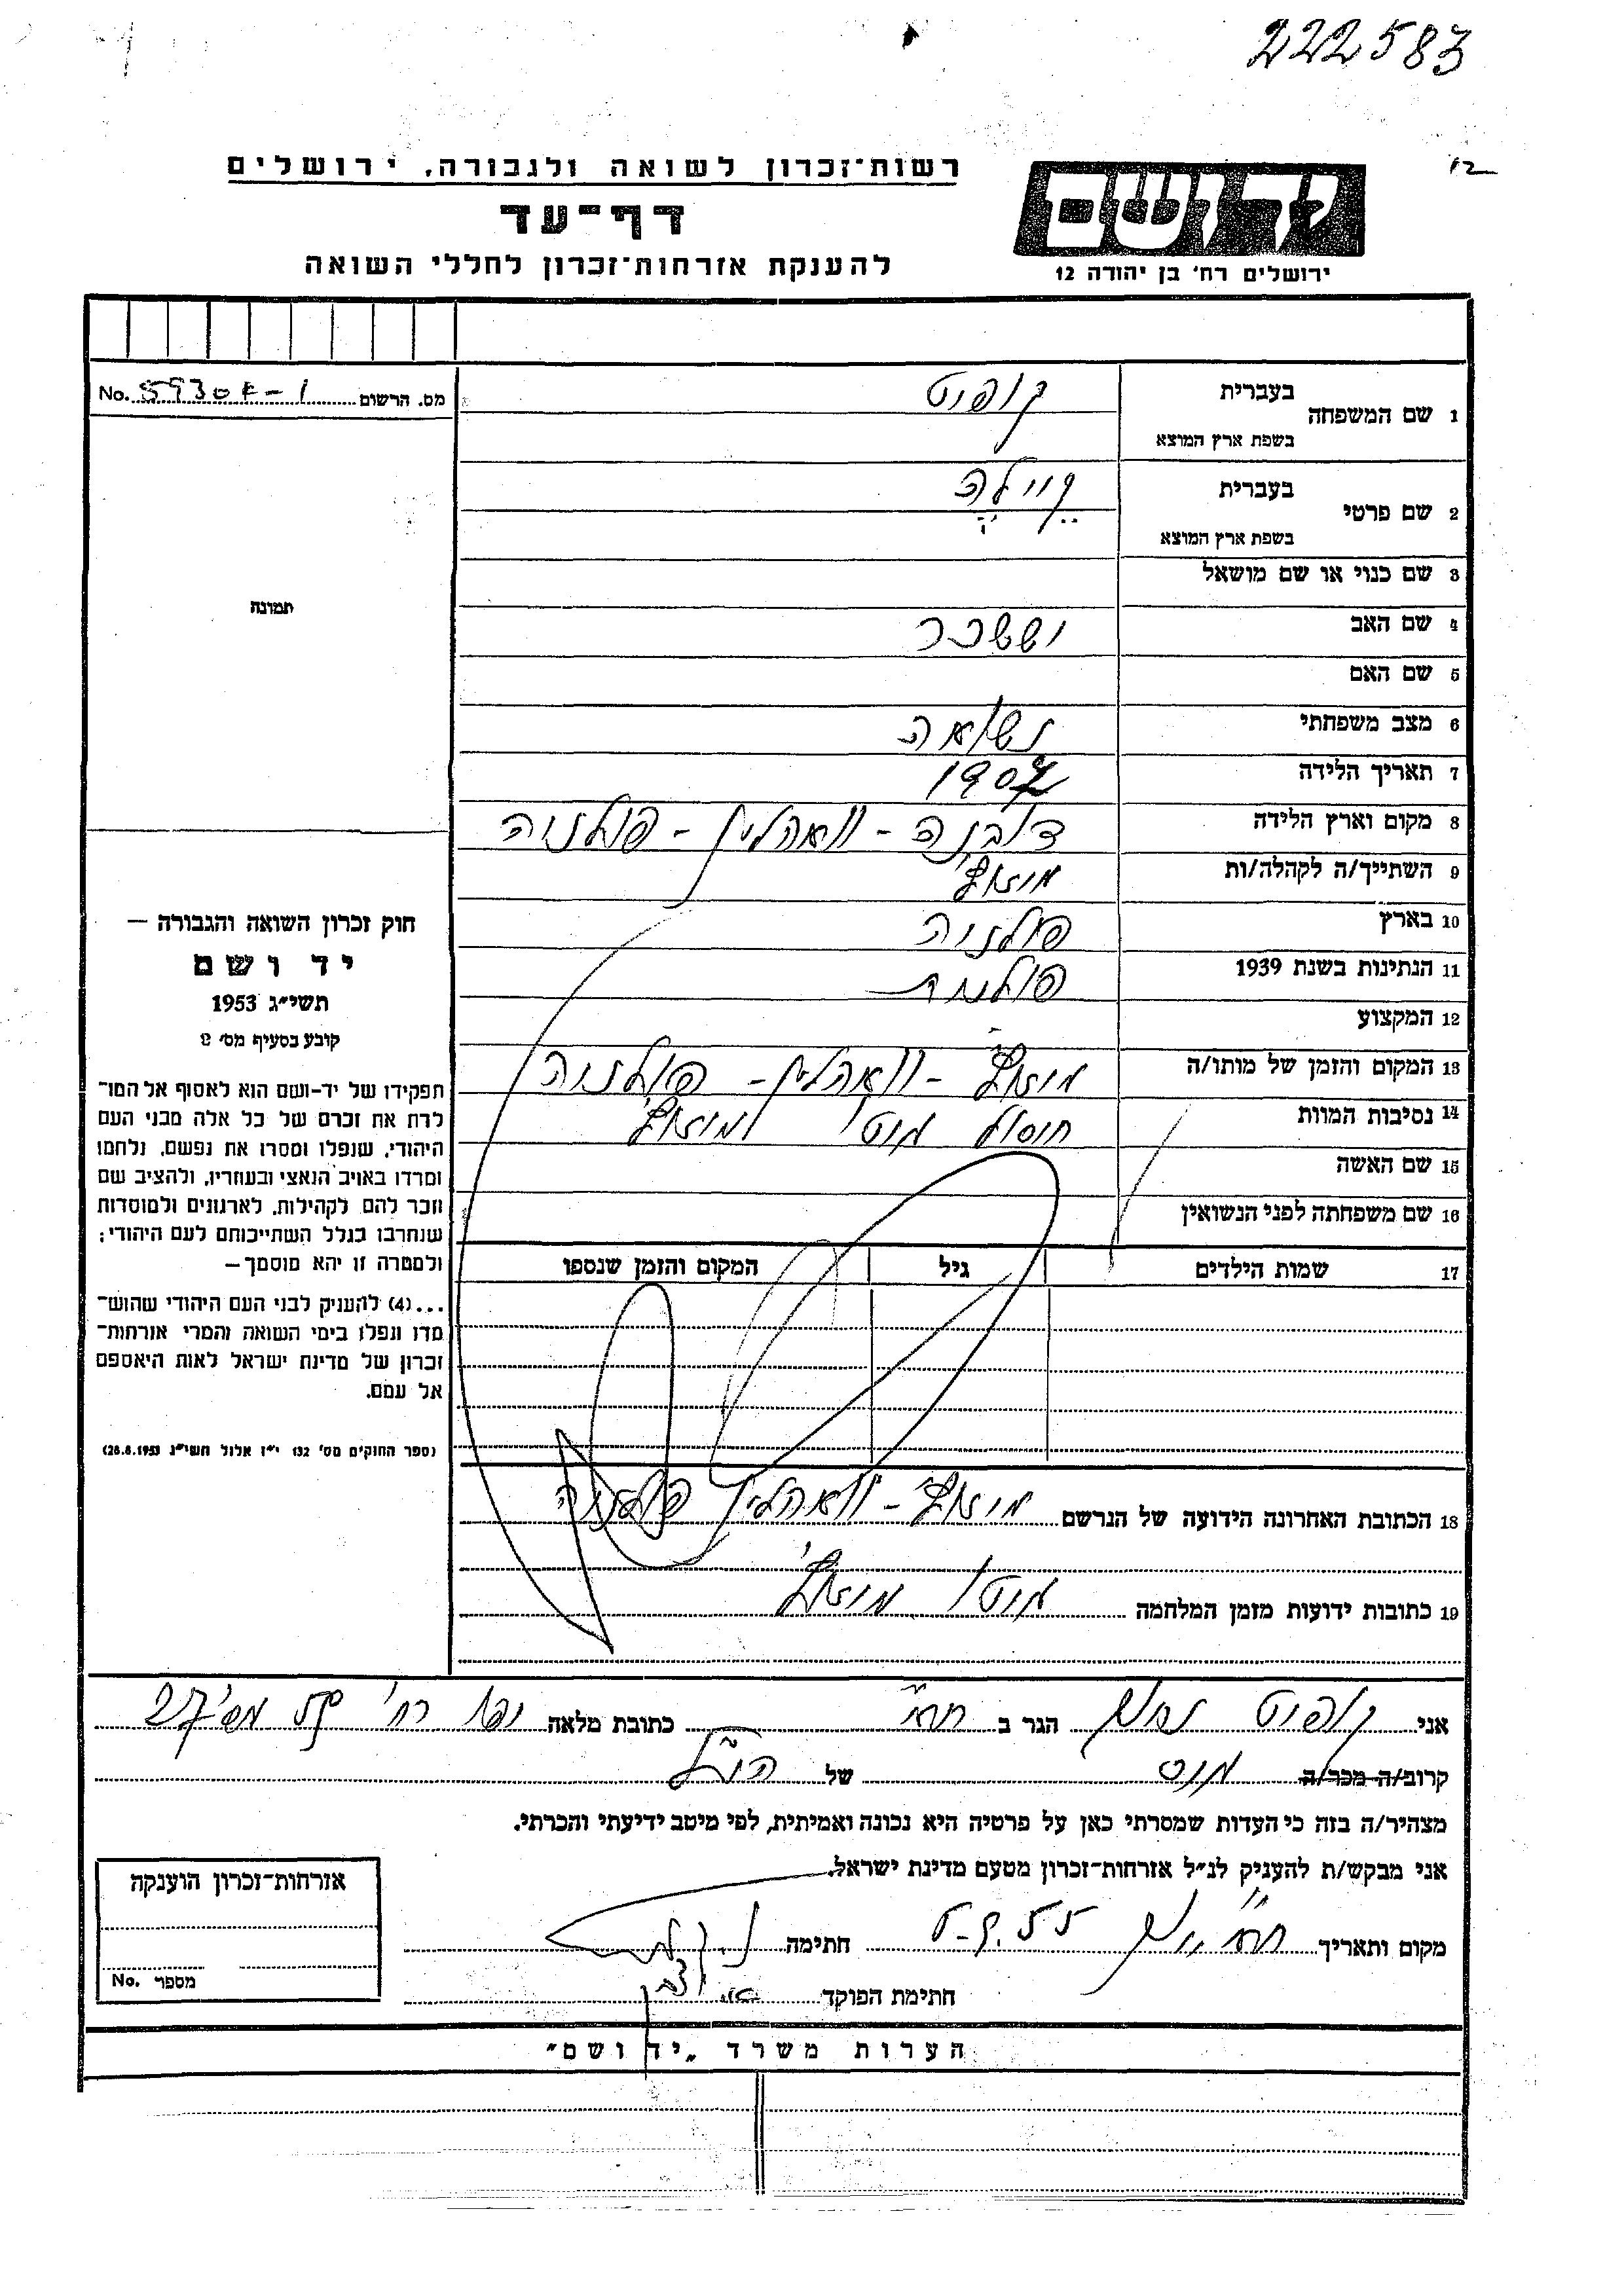 222583
12
רשות־זכרון לשואה ולגבורה, ירושלים
יד ושם
דף־עד
להענקת אזרחות־זכרון לחללי השואה
ירושלים רח' בן יהודה 12
מס. הרשום No.
1 שם המשפחה בעברית קופיט
בשפת ארץ המוצא
2 שם פרטי בעברית
בשפת ארץ המוצא
3 שם כנוי או שם מושאל
4 שם האב יששכר
5 שם האם
6 מצב משפחתי נשואה
7 תאריך הלידה
8 מקום וארץ הלידה דובנה - וואהלין - פולניה
9 השתייך/ה לקהלה/ות
10 בארץ פולניה
11 הנתינות בשנת 1939 פולנית
12 המקצוע
13 המקום והזמן של מותו/ה - וואהלין - פולניה
14 נסיבות המוות חוסול גיטו
15 שם האשה
16 שם משפחתה לפני הנשואין
17 שמות הילדים גיל המקום והזמן שנספו
18 הכתובת האחרונה הידועה של הנרשם - וואהלין פולניה
19 כתובות ידועות מזמן המלחמה גיטו
תמונה
חוק זכרון השואה והגבורה —
יד ושם
תשי״ג 1953
קובע בסעיף מס'
תפקידו של יד-ושם הוא לאסוף אל המו־
לדת את זכרם של כל אלה מבני העם
היהודי, שנפלו ומסרו את נפשם, נלחמו
ומרדו באויב הנאצי ובעוזריו, ולהציב שם
וזכר להם לקהילות, לארגונים ולמוסדות
שנחרבו בגלל השתייכותם לעם היהודי;
ולמטרה זו יהא מוסמך —
...(4) להעניק לבני העם היהודי שהוש־
מדו ונפלו בימי השואה והמרי אזרחות־
זכרון של מדינת ישראל לאות היאספם
אל עמם.
(ספר החוקים מס' 132 י״ז אלול תשי״ג 28.8.1953)
אני קופיט הגר ב כתובת מלאה יפו רח'
קרוב/ה מכר/ה של הנ״ל
מצהיר/ה בזה כי העדות שמסרתי כאן על פרטיה היא נכונה ואמיתית, לפי מיטב ידיעתי והכרתי.
אני מבקש/ת להעניק לנ״ל אזרחות-זכרון מטעם מדינת ישראל.
מקום ותאריך חתימה
חתימת הפוקד
אזרחות-זכרון הוענקה
מספר No.
הערות משרד „יד ושם״